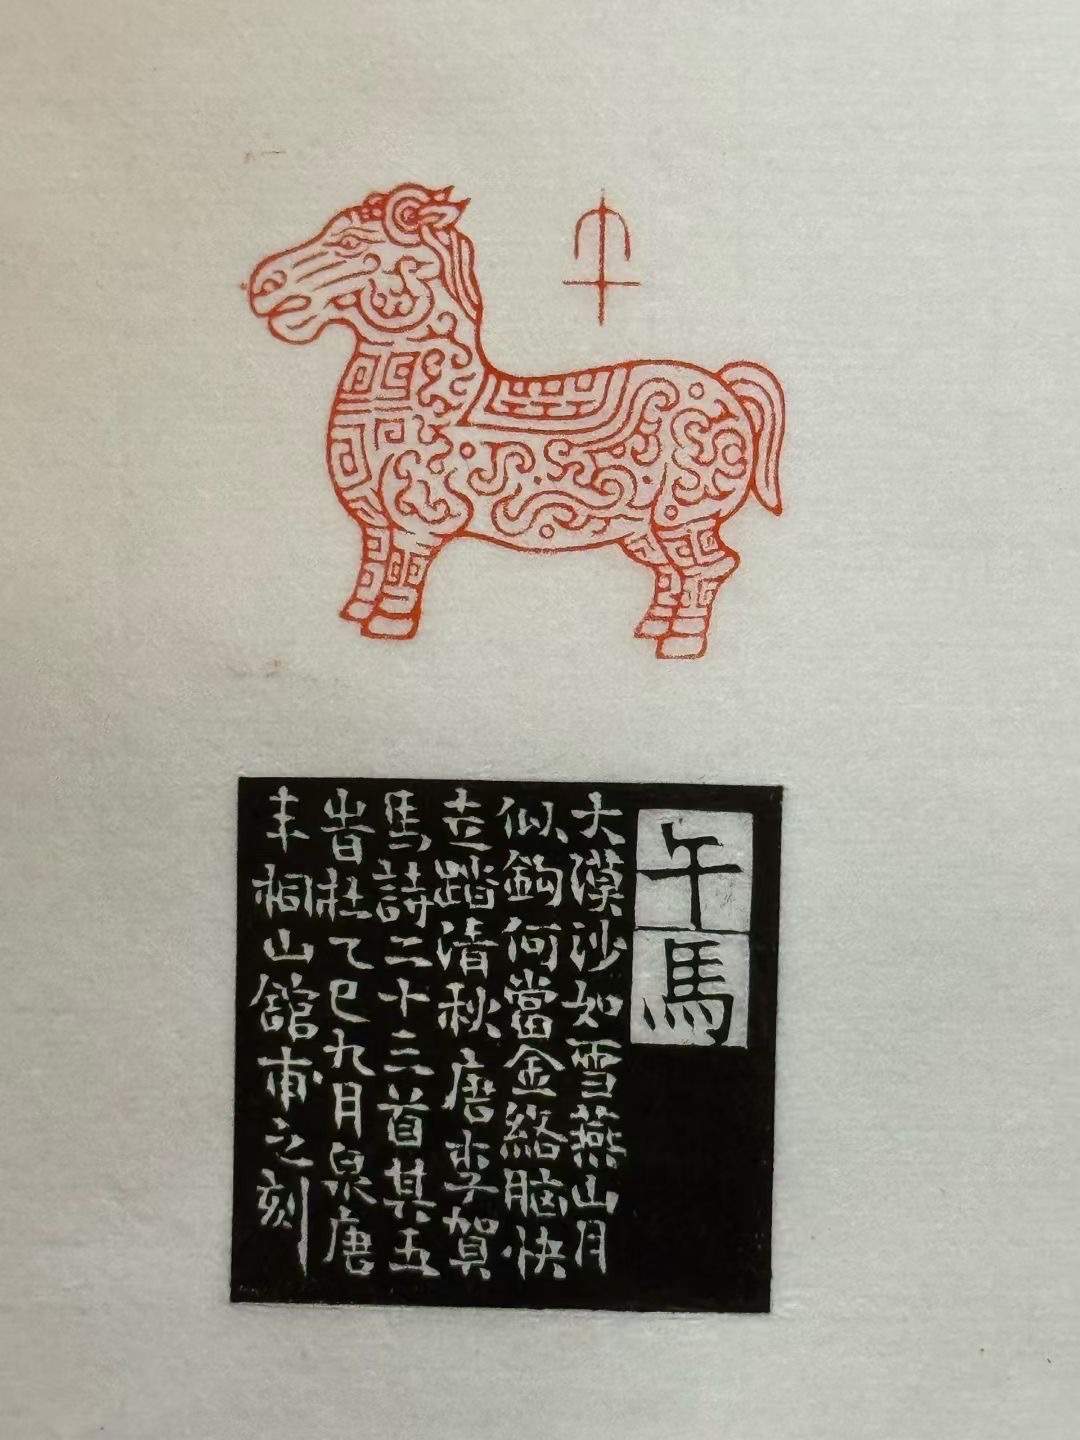 午
午馬
大漠沙如雪燕山月
似鈎何當金絡腦快
走踏清秋唐李賀
馬詩二十三首其五
旹在乙巳九月泉唐
桐山館甫之刻